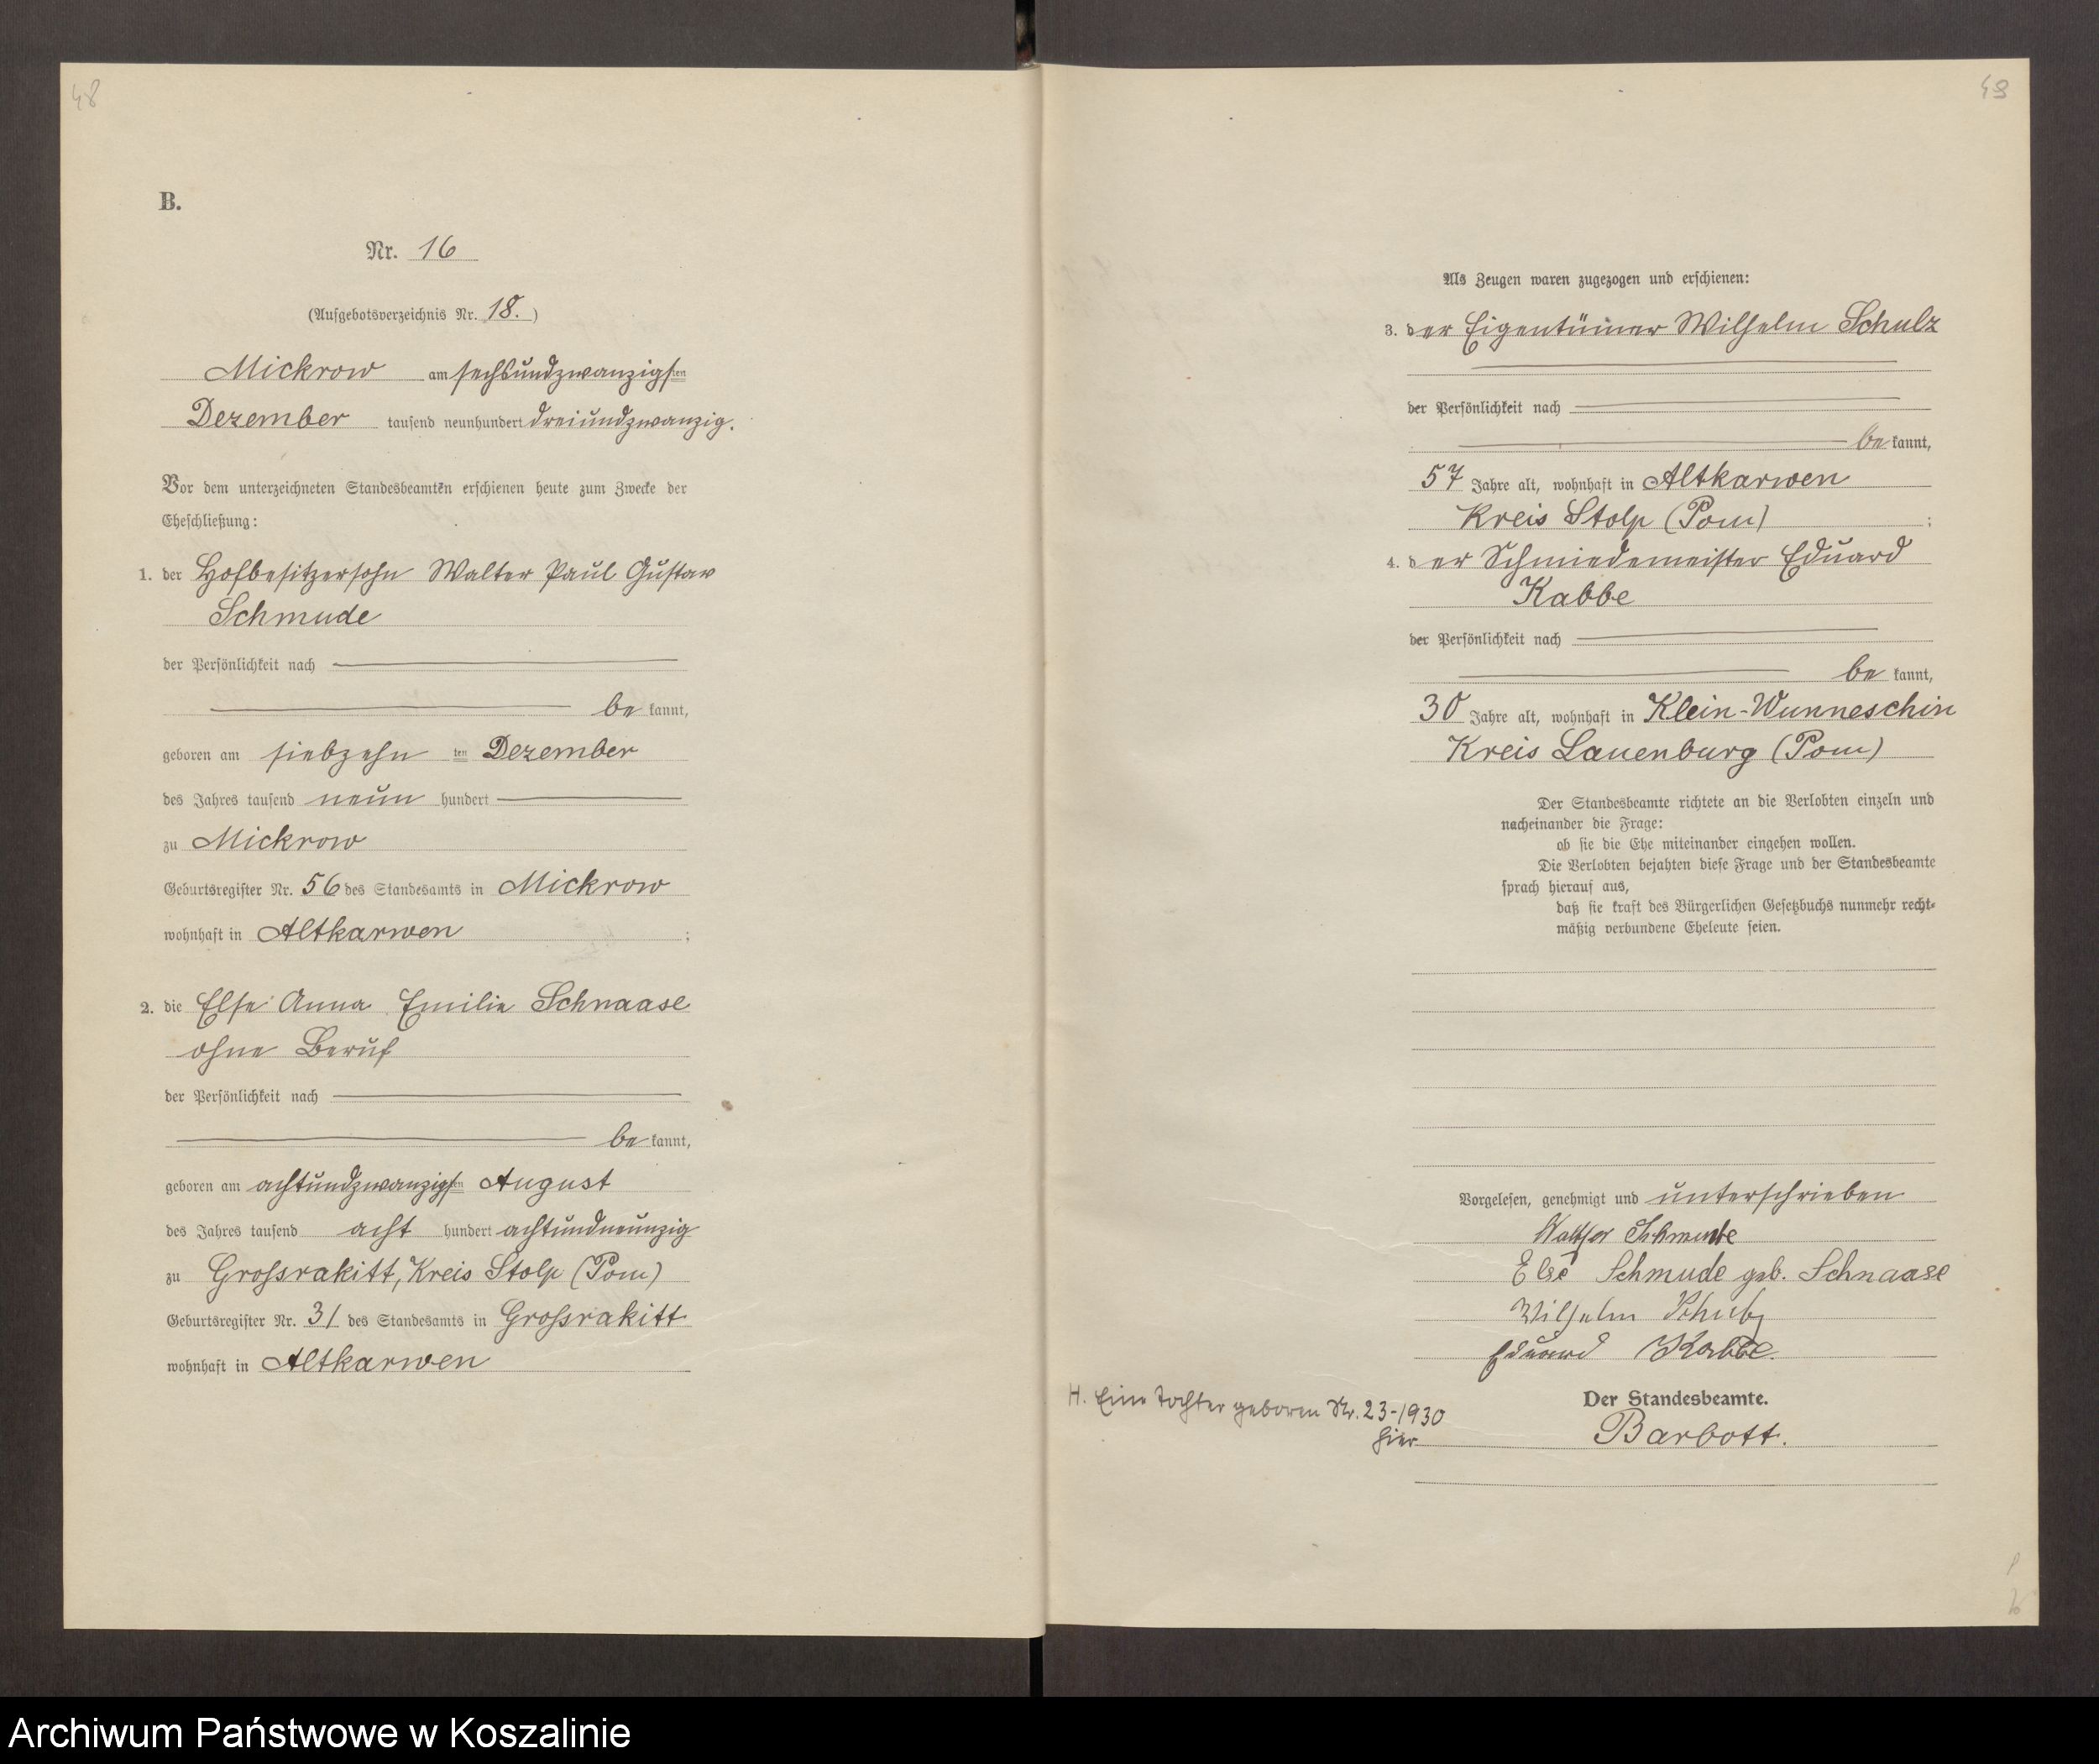 48
B.
Nr. 16
(Aufgebotsverzeichnis Nr. 18.)
Mickrow am sechsundzwanzigsten
Dezember tausend neunhundert dreiundzwanzig.
Vor dem unterzeichneten Standesbeamten erschienen heute zum Zwecke der
Eheschließung:
1. der Hofbesitzersohn Walter Paul Gustav
Schmude
der Persönlichkeit nach
be kannt,
geboren am siebzehn ten Dezember
des Jahres tausend neun hundert
zu Mickrow
Geburtsregister Nr. 56 des Standesamts in Mickrow
wohnhaft in Altkarwen ;
2. die Else Anna Emilie Schnaase
ohne Beruf
der Persönlichkeit nach
be kannt,
geboren am achtundzwanzigsten August
des Jahres tausend acht hundert achtundneunzig
zu Grossrakitt, Kreis Stolp (Pom)
Geburtsregister Nr. 31 des Standesamts in Grossrakitt
wohnhaft in Altkarwen
49
Als Zeugen waren zugezogen und erschienen:
3. der Eigentümer Wilhelm Schulz
der Persönlichkeit nach
be kannt,
57 Jahre alt, wohnhaft in Altkarwen
Kreis Stolp (Pom) ;
4. der Schmiedemeister Eduard
Kabbe
der Persönlichkeit nach
be kannt,
30 Jahre alt, wohnhaft in Klein-Wunneschin
Kreis Lauenburg (Pom)
Der Standesbeamte richtete an die Verlobten einzeln und
nacheinander die Frage:
ob sie die Ehe miteinander eingehen wollen.
Die Verlobten bejahten diese Frage und der Standesbeamte
sprach hierauf aus,
daß sie kraft des Bürgerlichen Gesetzbuchs nunmehr recht-
mäßig verbundene Eheleute seien.
Vorgelesen, genehmigt und unterschrieben
Walther Schmude
Else Schmude geb. Schnaase
Wilhelm Schulz
Eduard Kabbe.
H. Eine Tochter geboren Nr. 23-1930
hier
Der Standesbeamte.
Barbott.
Archiwum Państwowe w Koszalinie